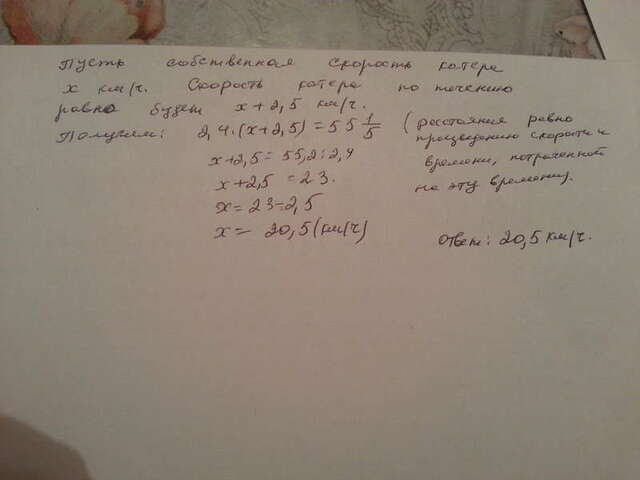 Пусть собственная скорость катера
x км/ч. Скорость катера по течению
равно будет x+2,5 км/ч.
Получаем: 2,4·(x+2,5)=55 1/5 (расстояние равно
произведению скорости и
x+2,5=55,2:2,4 времени, потраченной
x+2,5 =23. на эту времени).
x=23-2,5
x=20,5(км/ч) Ответ: 20,5 км/ч.